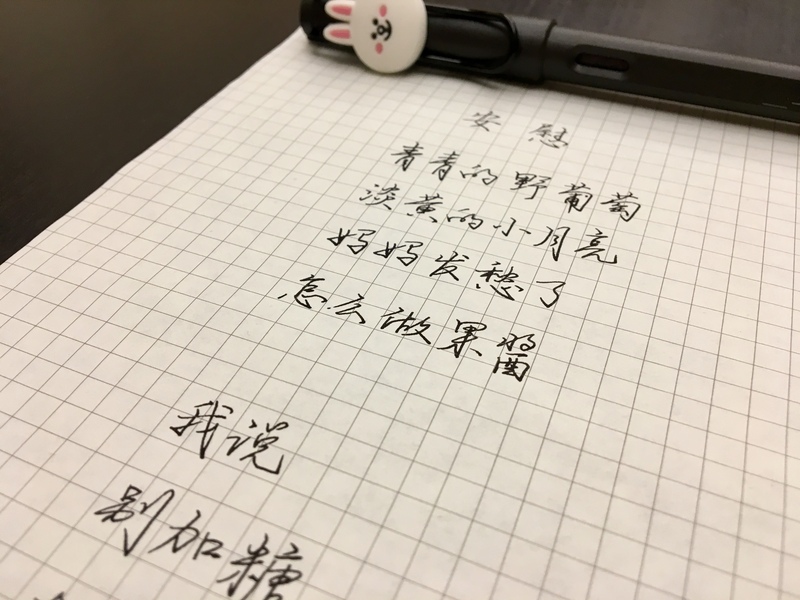 安慰
青青的野葡萄
淡黄的小月亮
妈妈发愁了
怎么做果酱
我说
别加糖